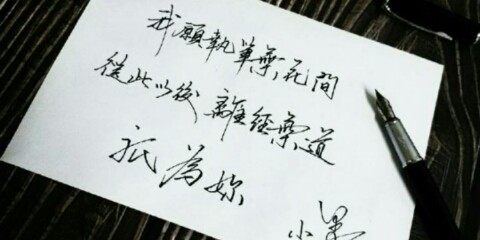 我願執筆棄花間
從此以後 離經棄道
祇為妳
小